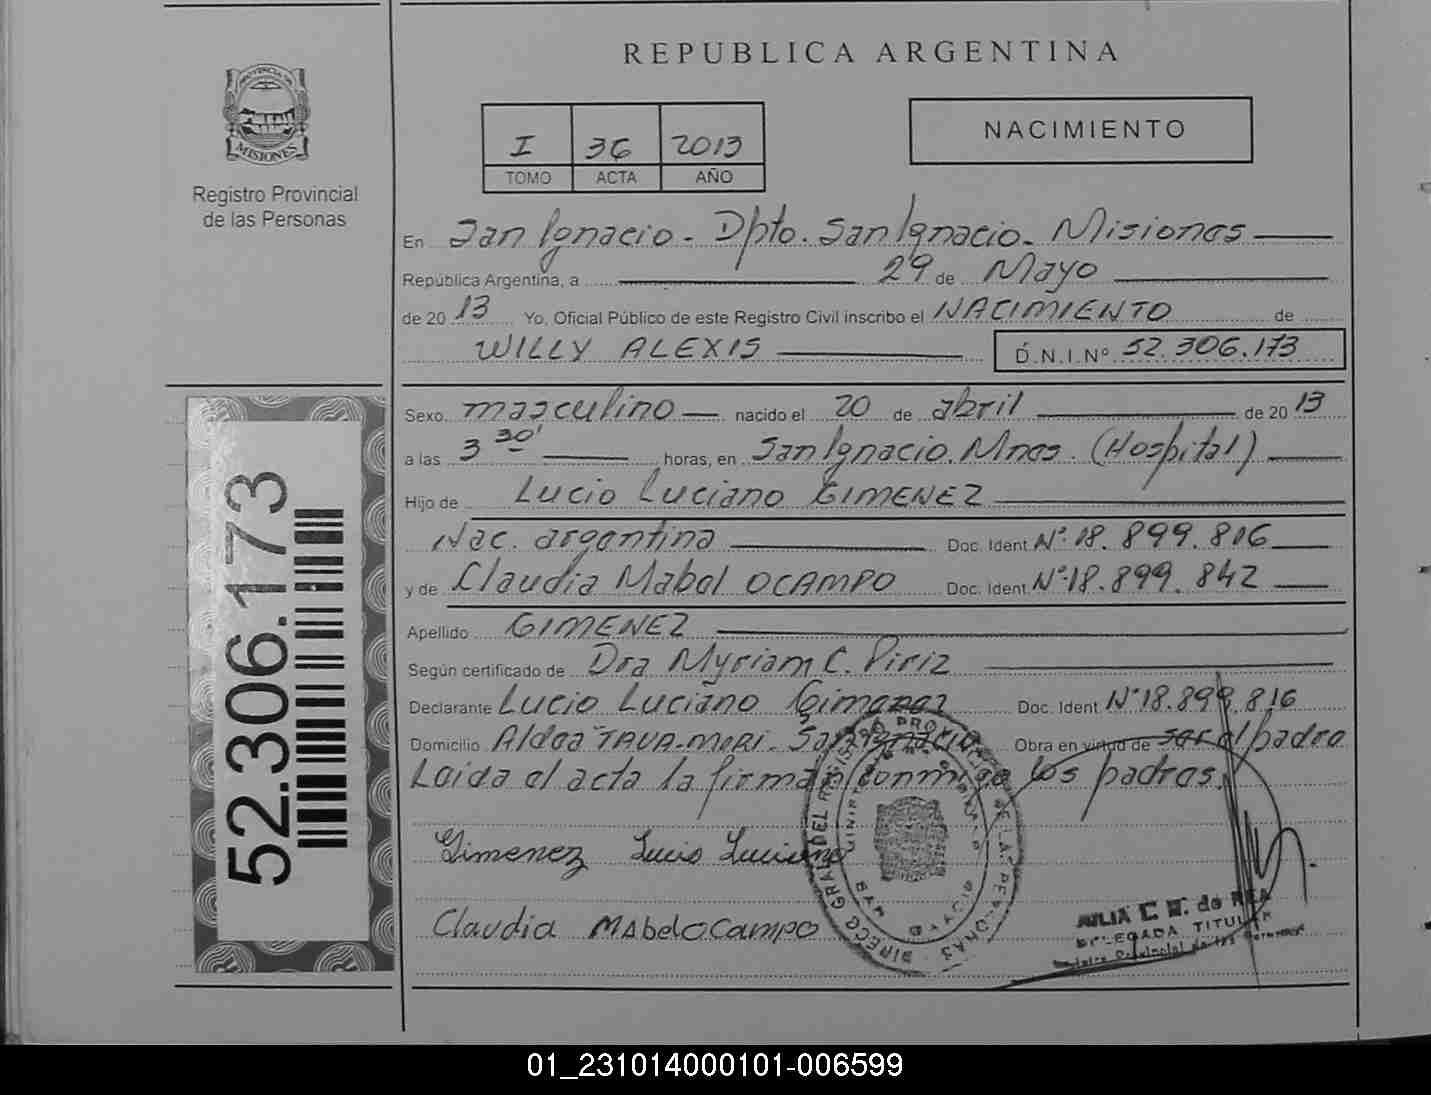 REPUBLICA ARGENTINA
PROVINCIA DE
MISIONES
Registro Provincial
de las Personas
I 36 2013
TOMO ACTA AÑO
NACIMIENTO
En San Ignacio. Dpto. San Ignacio. Misiones
República Argentina, a 29 de Mayo
de 2013 Yo, Oficial Público de este Registro Civil inscribo el NACIMIENTO de
WILLY ALEXIS D.N.I.Nº 52.306.173
Sexo masculino nacido el 20 de abril de 2013
a las 3 30' horas, en San Ignacio. Mnes. (Hospital)
Hijo de Lucio Luciano GIMENEZ
Nac. argentina Doc. Ident. Nº 18.899.816
y de Claudia Mabel OCAMPO Doc. Ident. Nº 18.899.842
Apellido GIMENEZ
Según certificado de Dra Myriam C. Piriz
Declarante Lucio Luciano Gimenez Doc. Ident. Nº 18.899.816
Domicilio Aldea TAVA-MIRI. San Ignacio Obra en virtud de ser el padre
Leida el acta la firman conmigo los padres.
Gimenez Lucio Luciano
Claudia MAbel OCampo
DIRECC. GRAL DEL REGISTRO PROVINCIAL DE LAS PERSONAS
SAN IGNACIO
JULIA C. W. de REA
DELEGADA TITULAR
Provincial de las Personas
52.306.173
01_231014000101-006599